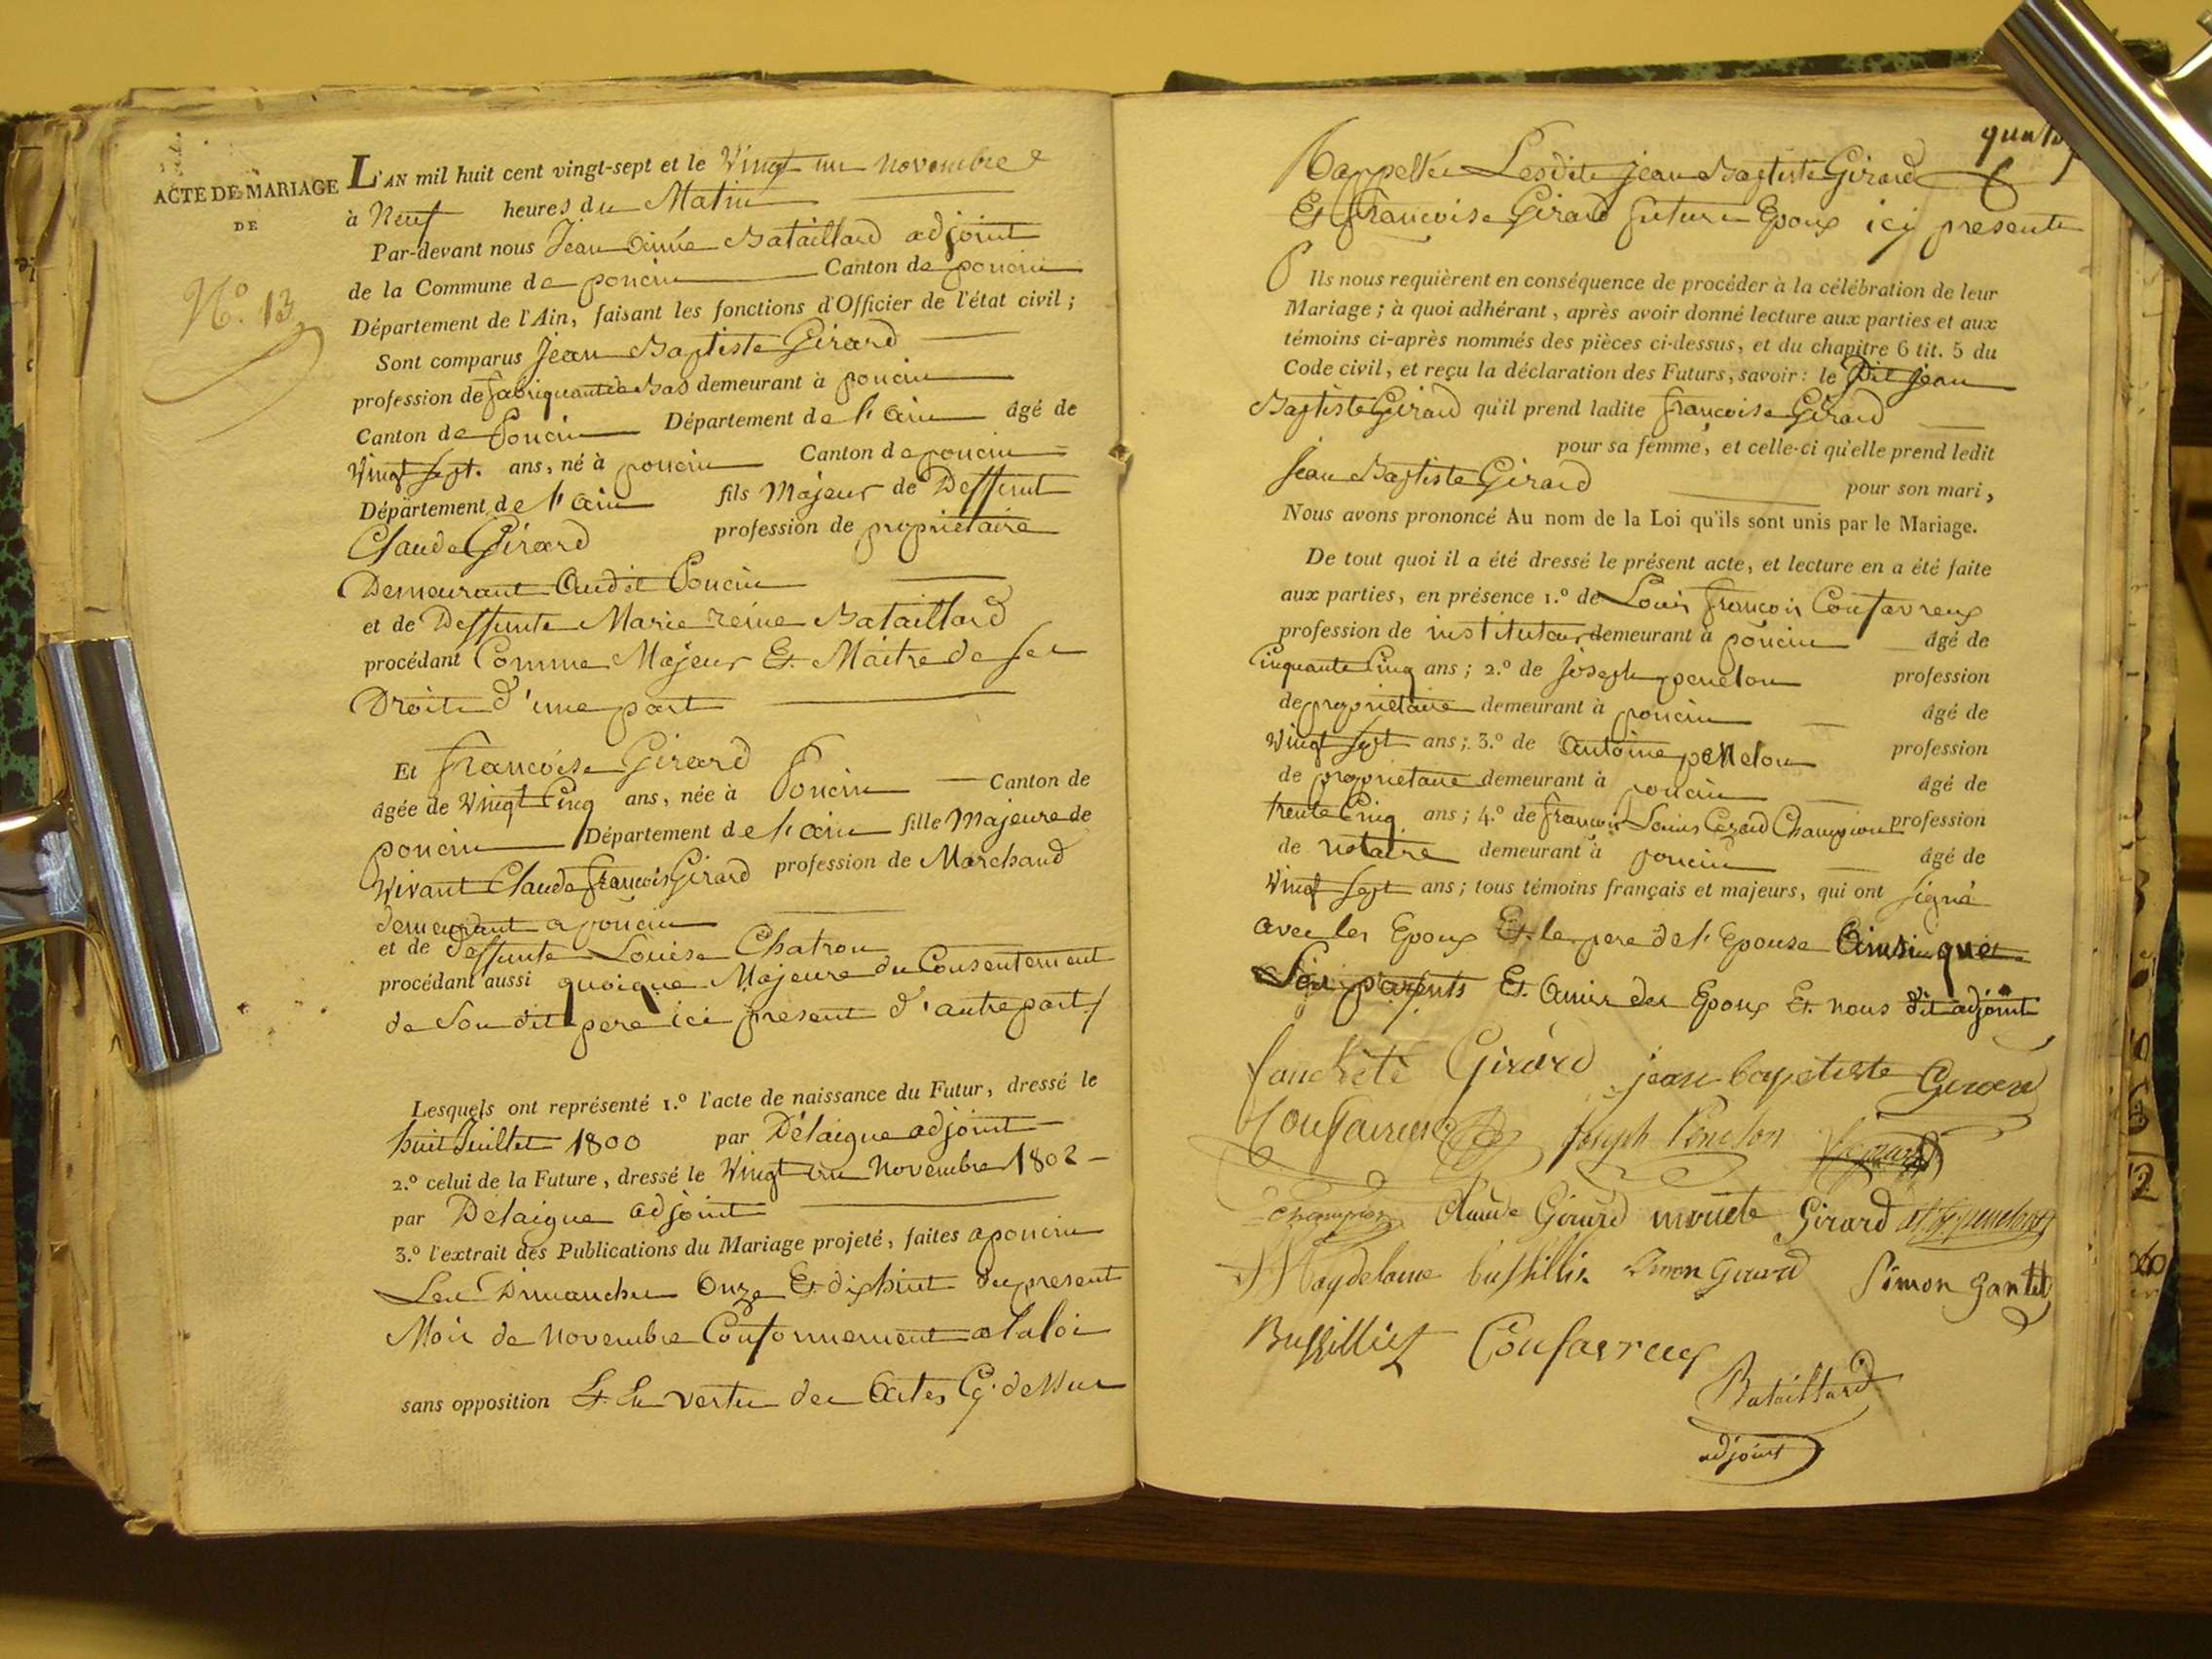 ACTE DE MARIAGE
DE
N.º 13
L'AN mil huit cent vingt-sept et le Vingt un novembre
à Neuf heures du Matin
Par-devant nous Jean Aimée Bataillard adjoint
de la Commune de poncin Canton de poncin
Département de l'Ain, faisant les fonctions d'Officier de l'état civil ;
Sont comparus Jean Baptiste Girard
profession de fabriquant de Bas demeurant à poncin
Canton de Poncin Département de l'ain âgé de
Vingt Sept. ans, né à poncin Canton de poncin
Département de l'ain fils Majeur de Deffunt
Claude Girard profession de propriétaire
Demeurant Audit Poncin
et de Deffunte Marie reine Bataillard
procédant Comme Majeur Et Maitre de ses
Droits d'une part
Et francoise Girard
âgée de Vingt Cinq ans, née à Poncin Canton de
poncin Département de l'ain fille Majeure de
Vivant Claude francois Girard profession de Marchand
demeurant a poncin
et de deffunte Louise Chatron
procédant aussi quoique Majeure du Consentement
de Son dit pere ici present d'autre part
Lesquels ont représenté 1.º l'acte de naissance du Futur, dressé le
huit Juillet 1800 par Delaigue adjoint
2.º celui de la Future, dressé le Vingt un Novembre 1802
par Delaigue adjoint
3.º l'extrait des Publications du Mariage projeté, faites a poncin
Les Dimanches Onze Et dix huit du present
Mois de Novembre Conformement a la loi
sans opposition Et En vertu des Actes Cy. dessus
Rappellés Lesdits jean Baptiste Girard
Et francoise Girard futurs Epoux ici presents
Ils nous requièrent en conséquence de procéder à la célébration de leur
Mariage ; à quoi adhérant, après avoir donné lecture aux parties et aux
témoins ci-après nommés des pièces ci-dessus, et du chapitre 6 tit. 5 du
Code civil, et reçu la déclaration des Futurs, savoir : le Dit Jean
Baptiste Girard qu'il prend ladite francoise Girard
pour sa femme, et celle-ci qu'elle prend ledit
Jean Baptiste Girard pour son mari,
Nous avons prononcé Au nom de la Loi qu'ils sont unis par le Mariage.
De tout quoi il a été dressé le présent acte, et lecture en a été faite
aux parties, en présence 1.º de Louis francois Confavreux
profession de instituteur demeurant à poncin âgé de
Cinquante Cinq ans ; 2.º de Joseph penelon profession
de propriétaire demeurant à poncin âgé de
Vingt Sept ans ; 3.º de Antoine penelon profession
de propriétaire demeurant à poncin âgé de
trente Cinq ans ; 4.º de francois Louis Champion profession
de notaire demeurant à poncin âgé de
Vingt Sept ans ; tous témoins français et majeurs, qui ont signé
avec les Epoux Et le pere de l'Epouse Ainsi que
parents Et Amis des Epoux Et nous dit adjoint
Girard jean baptiste Girard
Confavreux Joseph Penelon
Champion Claude Girard Girard
Magdelaine Simon Girard Simon gantet
Bussilliet Confavreux
Bataillard
adjoint